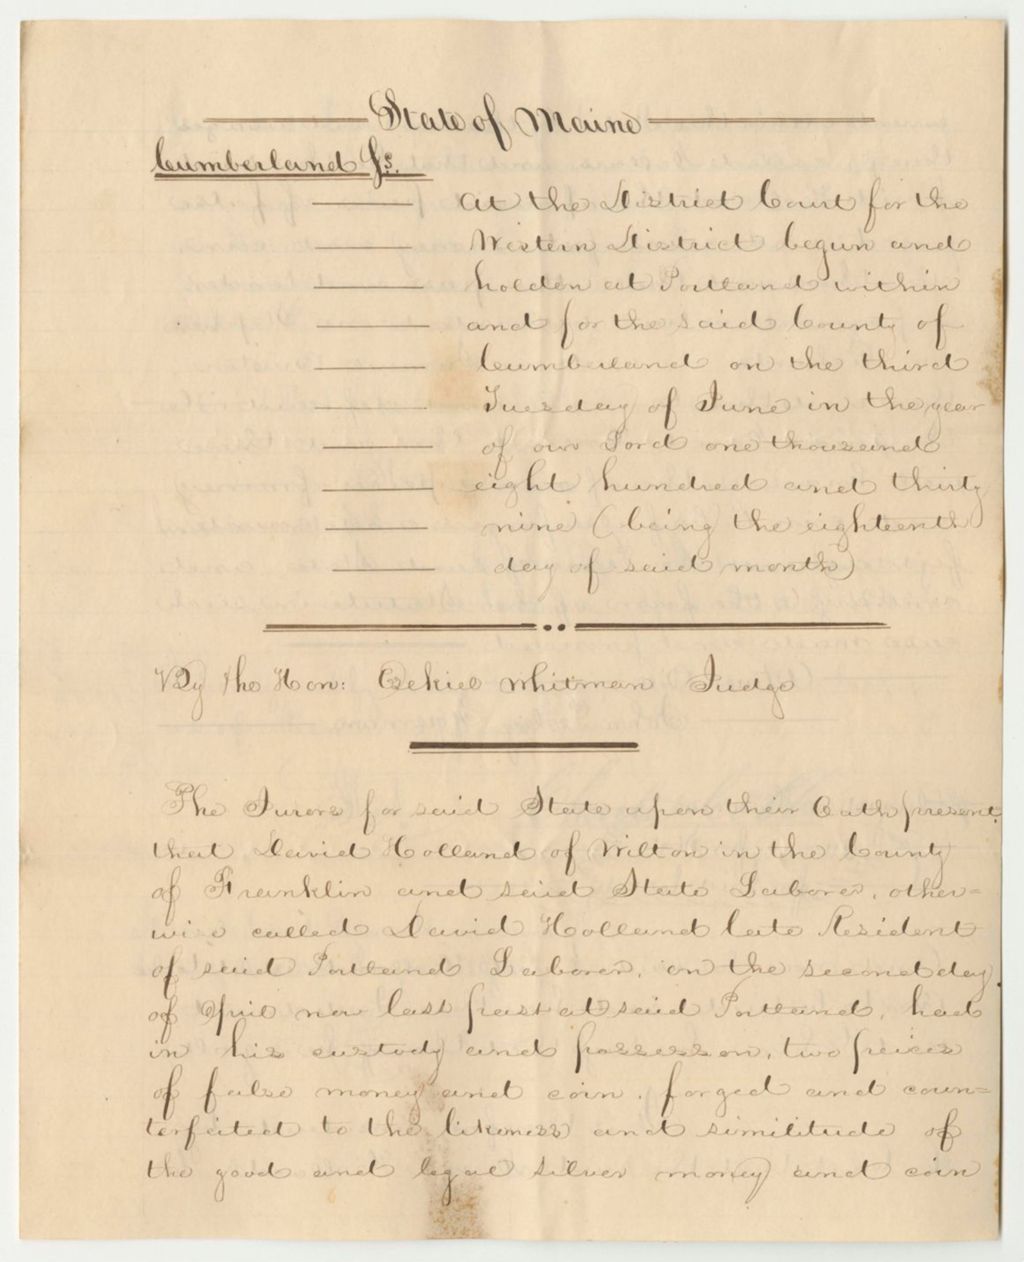 State of Maine
Cumberland Ss.
At the District Court for the
Western District begun and
holden at Portland within
and for the said County of
Cumberland on the third
Tuesday of June in the year
of our Lord one thousand
eight hundred and thirty
nine (being the eighteenth
day of said month)
By the Hon: Ezekiel Whitman Judge
The Jurors for said State upon their Oath present
that David Holland of Wilton in the County
of Franklin and said State Laborer, other=
wise called David Holland late Resident
of said Portland Laborer, on the second day
of April now last past at said Portland, had
in his custody and possesson, two peices
of false money and coin, forged and coun=
terfeited to the likeness and similitude of
the good and legal silver money and coin